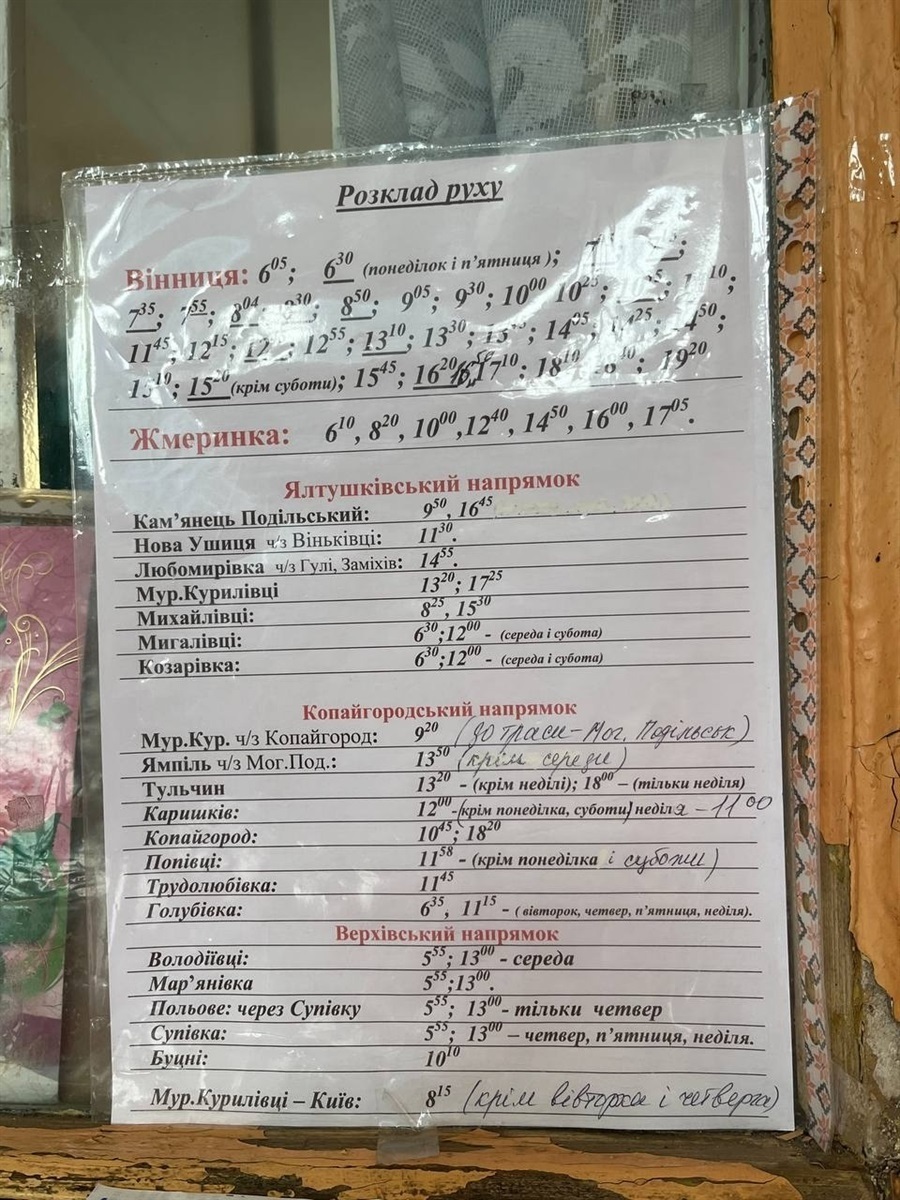 Розклад руху
Вінниця: 6⁰⁵; 6³⁰ (понеділок і п’ятниця);
7³⁵; 7⁵⁵; 8⁰⁴; 8³⁰; 8⁵⁰; 9⁰⁵; 9³⁰; 10⁰⁰ 10²⁵;
11⁴⁵; 12¹⁵; 12⁵⁵; 13¹⁰; 13³⁰; 14⁰⁵;
15¹⁰; 15²⁰ (крім суботи); 15⁴⁵; 16²⁰ 17¹⁰; 18¹⁰ 19²⁰
Жмеринка: 6¹⁰, 8²⁰, 10⁰⁰, 12⁴⁰, 14⁵⁰, 16⁰⁰, 17⁰⁵.
Ялтушківський напрямок
Кам’янець Подільський: 9⁵⁰, 16⁴⁵
Нова Ушиця ч/з Віньківці: 11³⁰.
Любомирівка ч/з Гулі, Заміхів: 14⁵⁵.
Мур.Курилівці 13²⁰; 17²⁵
Михайлівці: 8²⁵, 15³⁰
Мигалівці: 6³⁰;12⁰⁰ - (середа і субота)
Козарівка: 6³⁰;12⁰⁰ - (середа і субота)
Копайгородський напрямок
Мур.Кур. ч/з Копайгород: 9²⁰ (до траси - Мог. Подільськ)
Ямпіль ч/з Мог.Под.: 13⁵⁰ (крім середи)
Тульчин 13²⁰ - (крім неділі); 18⁰⁰ – (тільки неділя)
Каришків: 12⁰⁰-(крім понеділка, суботи) неділя - 11⁰⁰
Копайгород: 10⁴⁵; 18²⁰
Попівці: 11⁵⁸ - (крім понеділка і суботи)
Трудолюбівка: 11⁴⁵
Голубівка: 6³⁵, 11¹⁵ - (вівторок, четвер, п’ятниця, неділя).
Верхівський напрямок
Володіївці: 5⁵⁵; 13⁰⁰ - середа
Мар’янівка 5⁵⁵;13⁰⁰.
Польове: через Супівку 5⁵⁵; 13⁰⁰ - тільки четвер
Супівка: 5⁵⁵; 13⁰⁰ – четвер, п’ятниця, неділя.
Буцні: 10¹⁰
Мур.Курилівці – Київ: 8¹⁵ (крім вівторка і четверга)